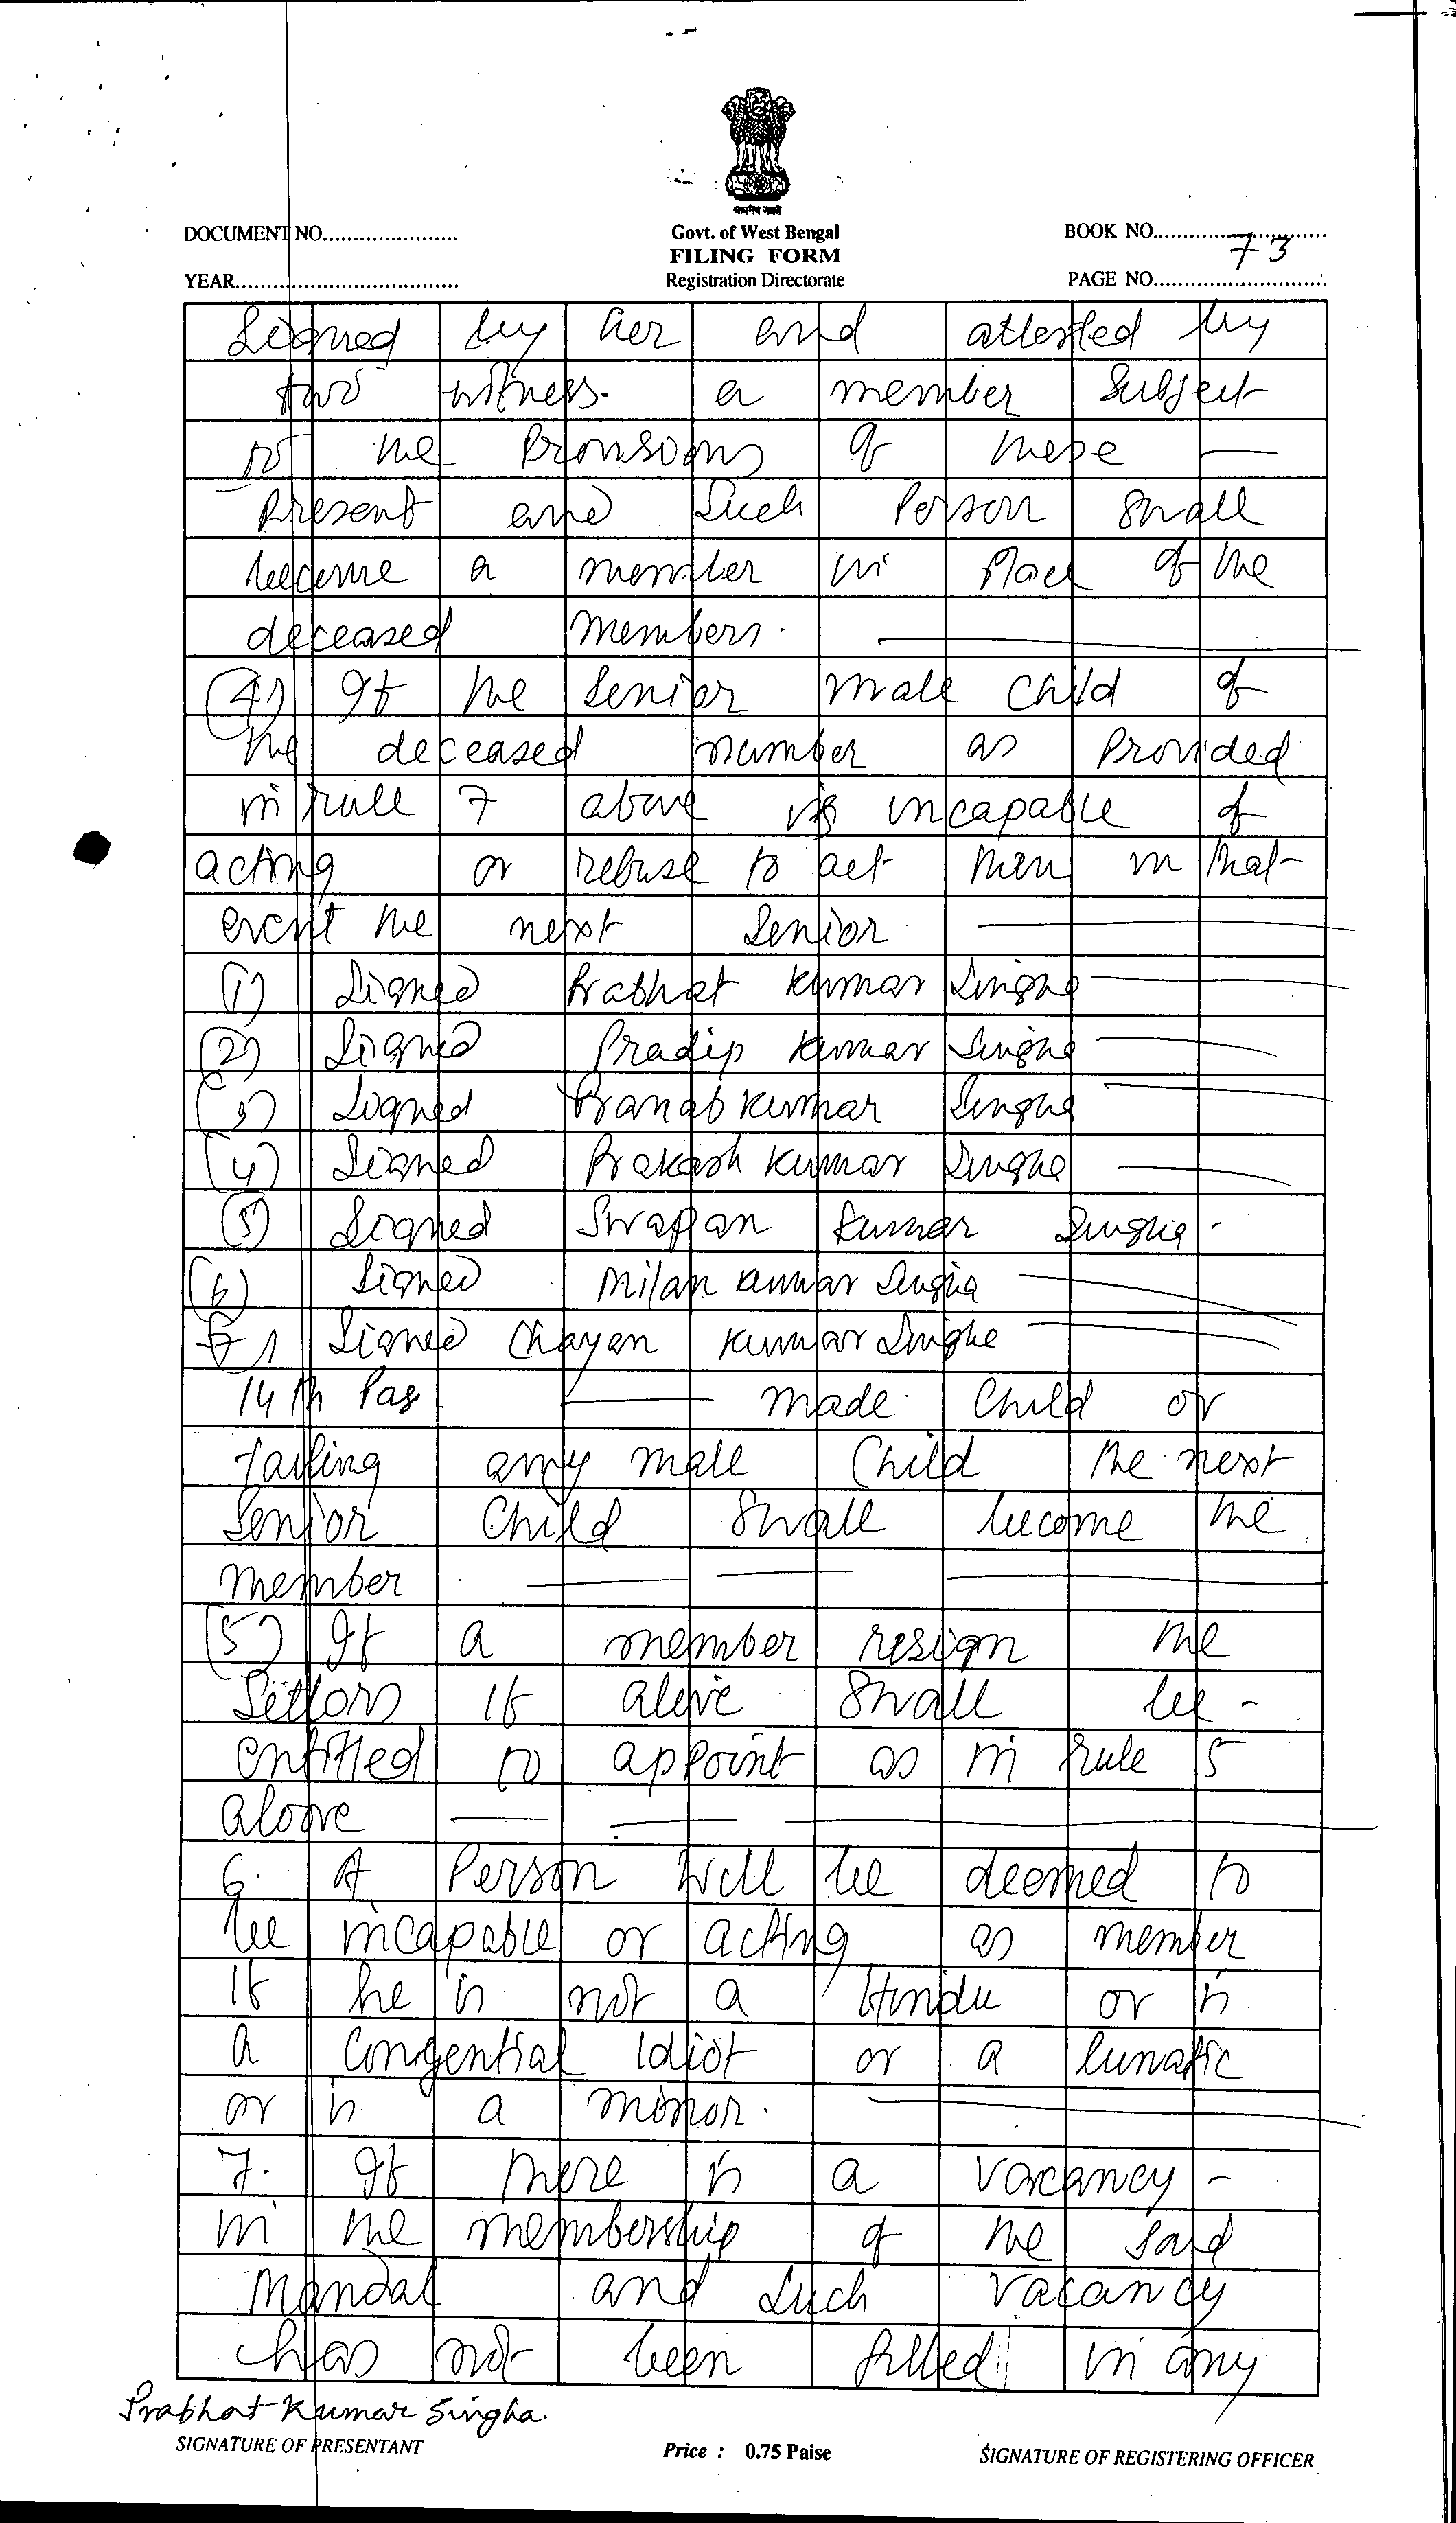 सत्यमेव जयते
DOCUMENT NO......................
Govt. of West Bengal
BOOK NO.............................
FILING FORM
73
YEAR......................................
Registration Directorate
PAGE NO.............................
Signed by her and attested by
two witness. a member Subject
to the Provisions of these —
Present and Such Person Shall
become a member in Place of the
deceased members.
(4) If the Senior male Child of
the deceased number as Provided
in rule 7 above is incapable of
acting or refuse to act then in that
event the next Senior
(1) Signed Prabhat Kumar Singha
(2) Signed Pradip Kumar Singha
(3) Signed Pranab Kumar Singha
(4) Signed Prakash Kumar Singha
(5) Signed Swapan Kumar Singha
(6) Signed Milan Kumar Singha
7) Signed Chayan Kumar Singha
14th Pag — made Child or
failing any male Child the next
Senior Child Shall become the
member
(5) If a member resign the
Settlors if alive Shall be -
entitled to appoint as in rule 5
above
6. A Person Will be deemed to
be incapable or acting as member
If he is not a Hindu or is
a Congential Idiot or a lunatic
or is a minor.
7. If there is a vacancy -
in the membership of the said
Mandal and Such vacancy
has not been filled in any
Prabhat Kumar Singha.
SIGNATURE OF PRESENTANT
Price : 0.75 Paise
SIGNATURE OF REGISTERING OFFICER